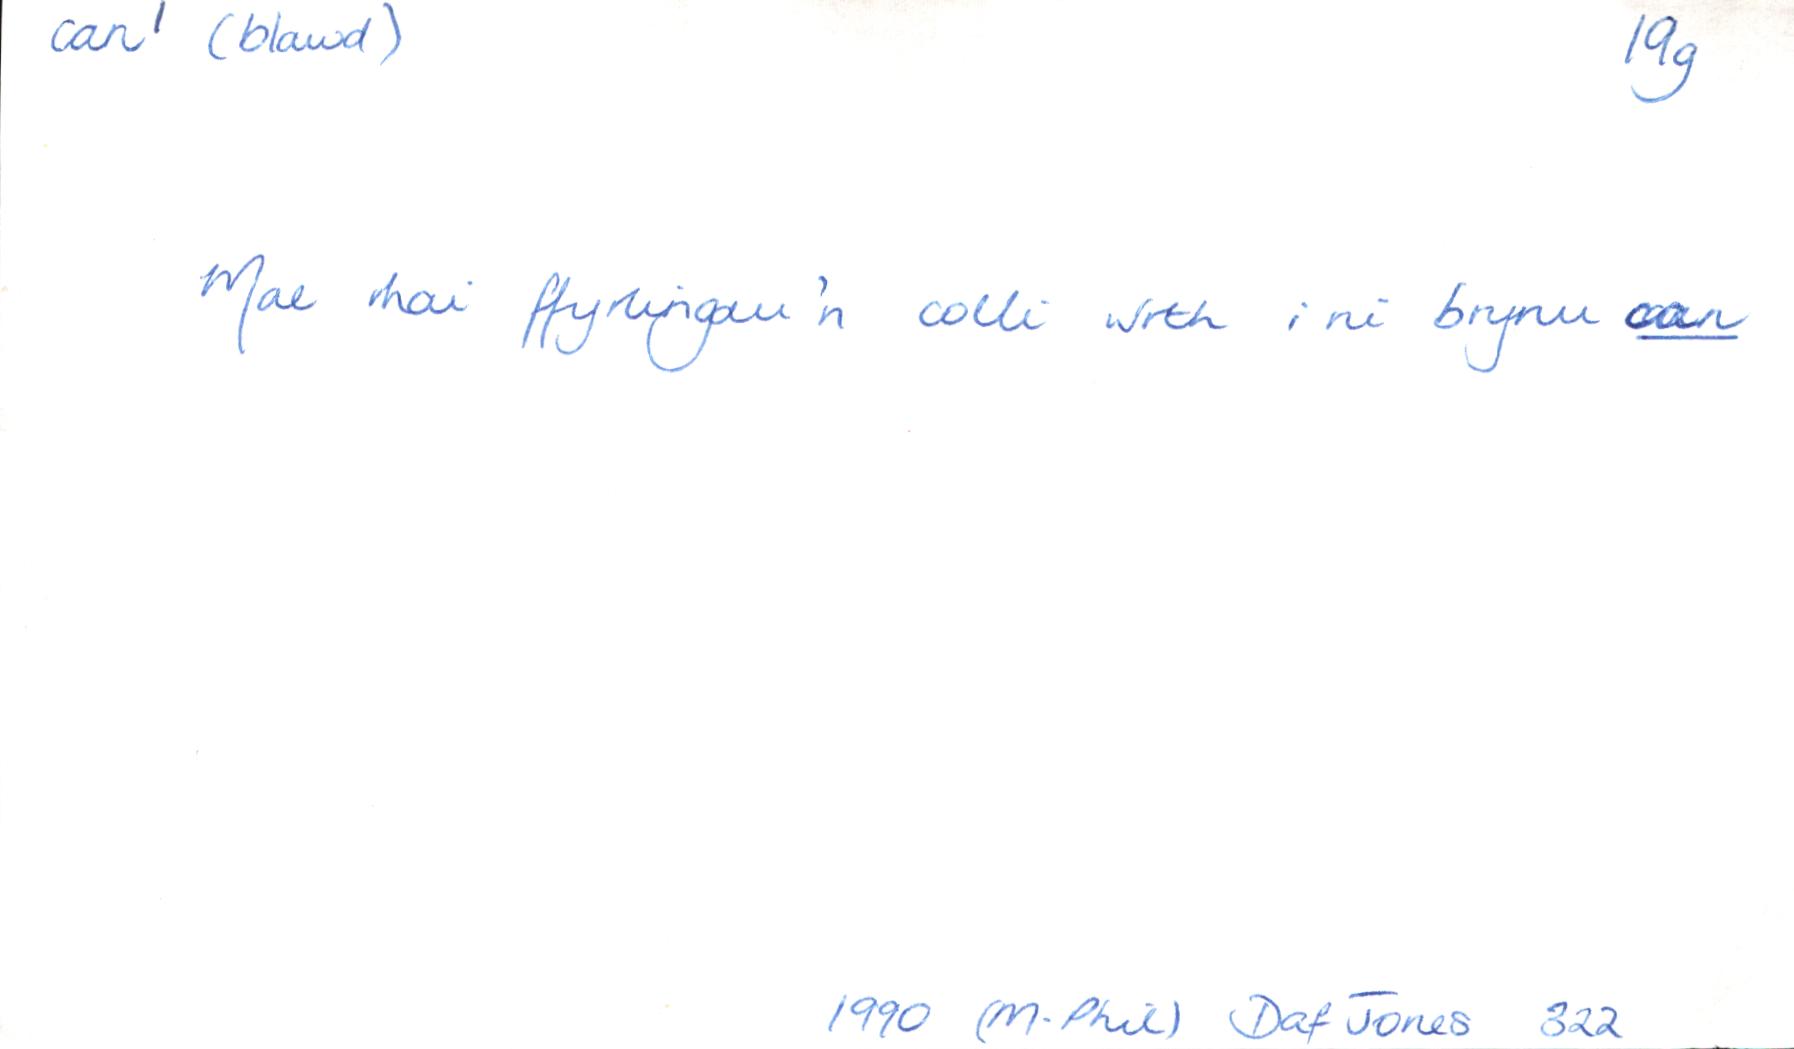 can¹ (blawd) 19g
Mae rhai ffyrlingau'n colli wrth i ni brynu can
1990 (M.Phil) Daf Jones 322